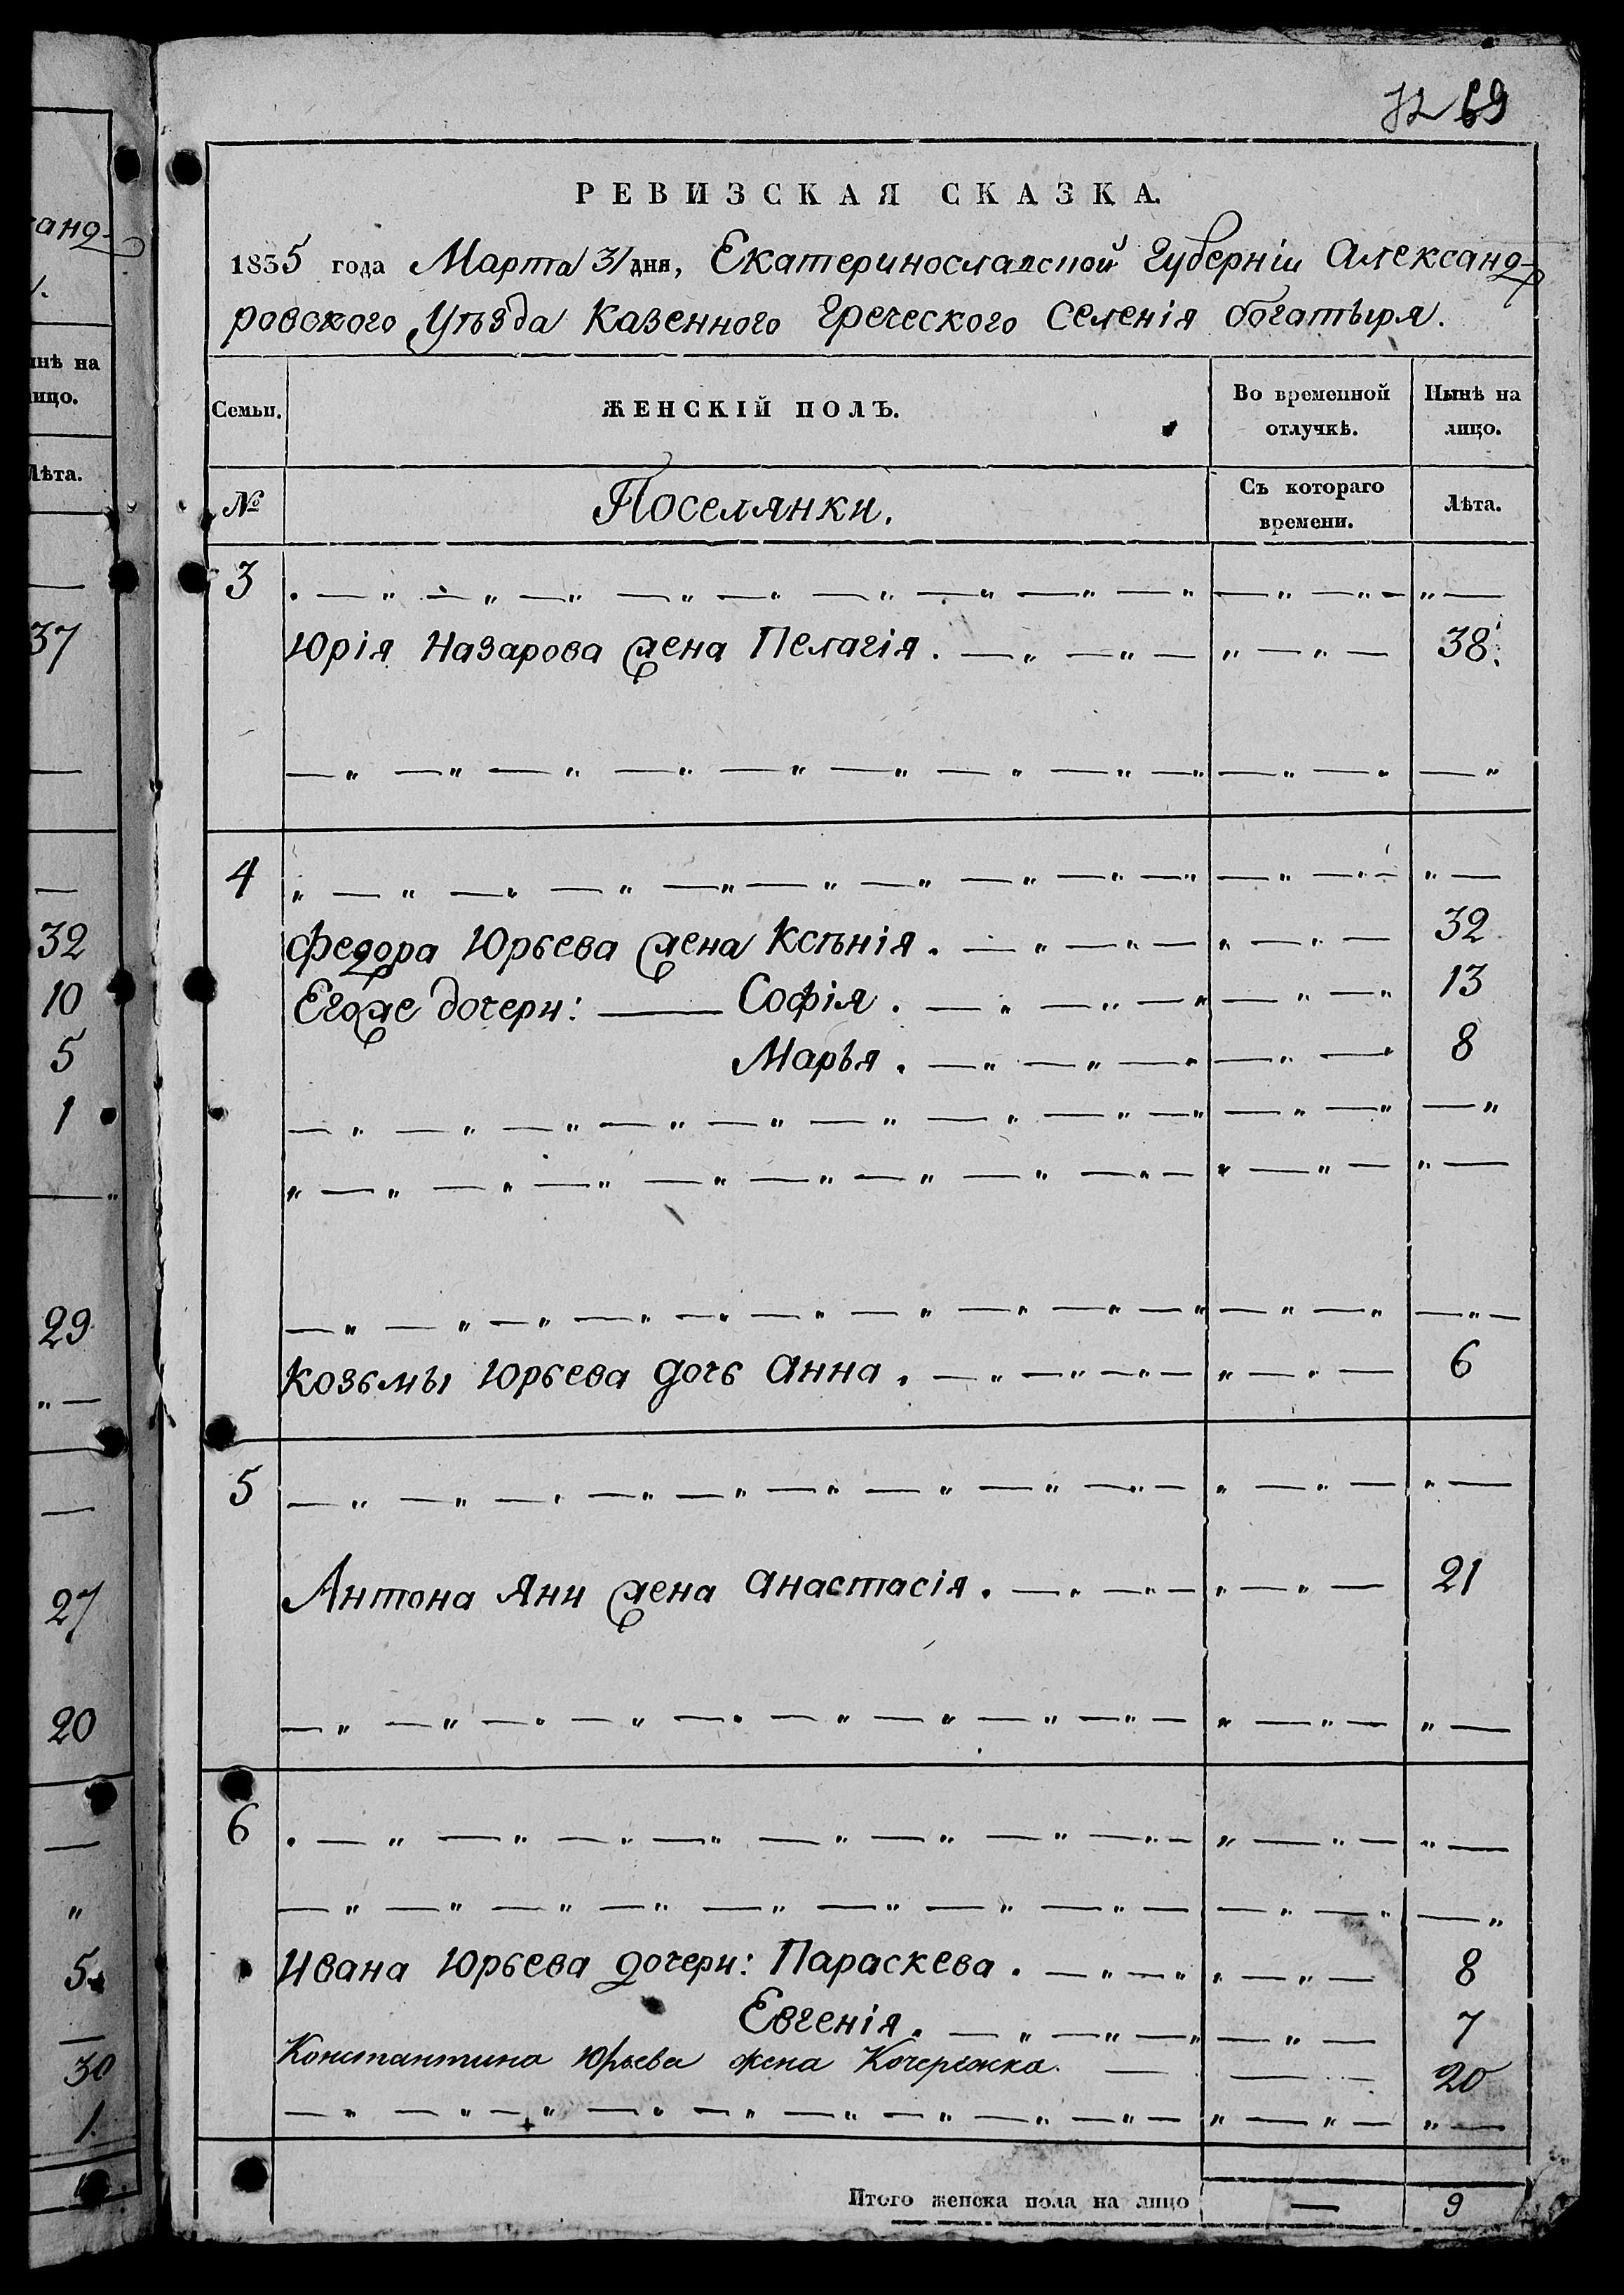 72 69
РЕВИЗСКАЯ СКАЗКА.
1835 года Марта 31 дня, Екатеринославской Губерніи Александ-
ровского Уѣзда Казенного Греческого Селенія Богатыря.
Семьи. ЖЕНСКІЙ ПОЛЪ. Во временной отлучкѣ. Нынѣ на лицо.
№ Поселянки. Съ котораго времени. Лѣта.
3
Юрія Назарова жена Пелагія. 38.
4
Федора Юрьева жена Ксѣнія. 32
Егоже дочери: Софія. 13
Марья. 8
Козьмы Юрьева дочь Анна. 6
5
Антона Яни жена Анастасія. 21
6
Ивана Юрьева дочери: Параскева. 8
Евгенія. 7
Константина Юрьева жена Кочережка. 20
Итого женска пола на лицо — 9
анд-
нѣ на
ицо.
Лѣта.
37
32
10
5
1
29
27
20
5
30
1.